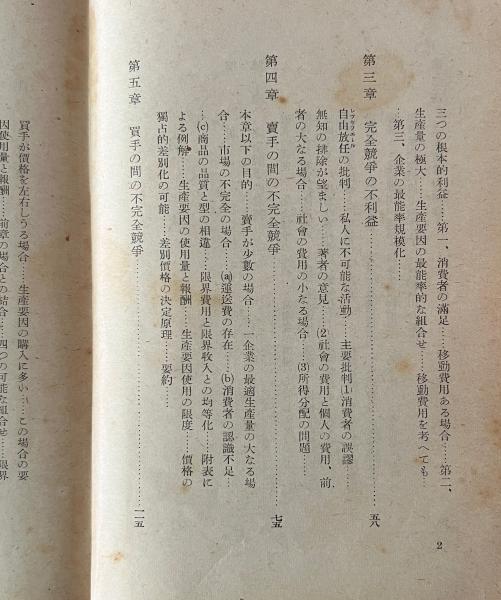 三つの根本的利益……第一、消費者の滿足……移動費用ある場合……第二、
生産量の極大……生産要因の最能率的な組合せ……移動費用を考へても
……第三、企業の最能率規模化……
第三章 完全競爭の不利益……五八
自由放任の批判……私人に不可能な活動……主要批判(1)消費者の誤謬……
レツセフエール
無知の排除が望ましい……著者の意見……(2)社會の費用と個人の費用、前
者の大なる場合……社會の費用の小なる場合……(3)所得分配の問題……
第四章 賣手の間の不完全競爭……七五
本章以下の目的……賣手が少數の場合……一企業の最適生産量の大なる場
合……市場の不完全の場合……(a)運送費の存在……(b)消費者の認識不足…
…(c)商品の品質と型の相違……限界費用と限界收入との均等化……附表に
よる例解……生産要因の使用量と報酬……生産要因使用の限度……價格の
獨占的差別化の可能……差別價格の決定原理……要約……
第五章 買手の間の不完全競爭……一一五
買手が價格を左右しうる場合……生産要因の購入に多い……この場合の要
因使用量と報酬……前章の場合との結合……四つの可能な組合せ……限界
2